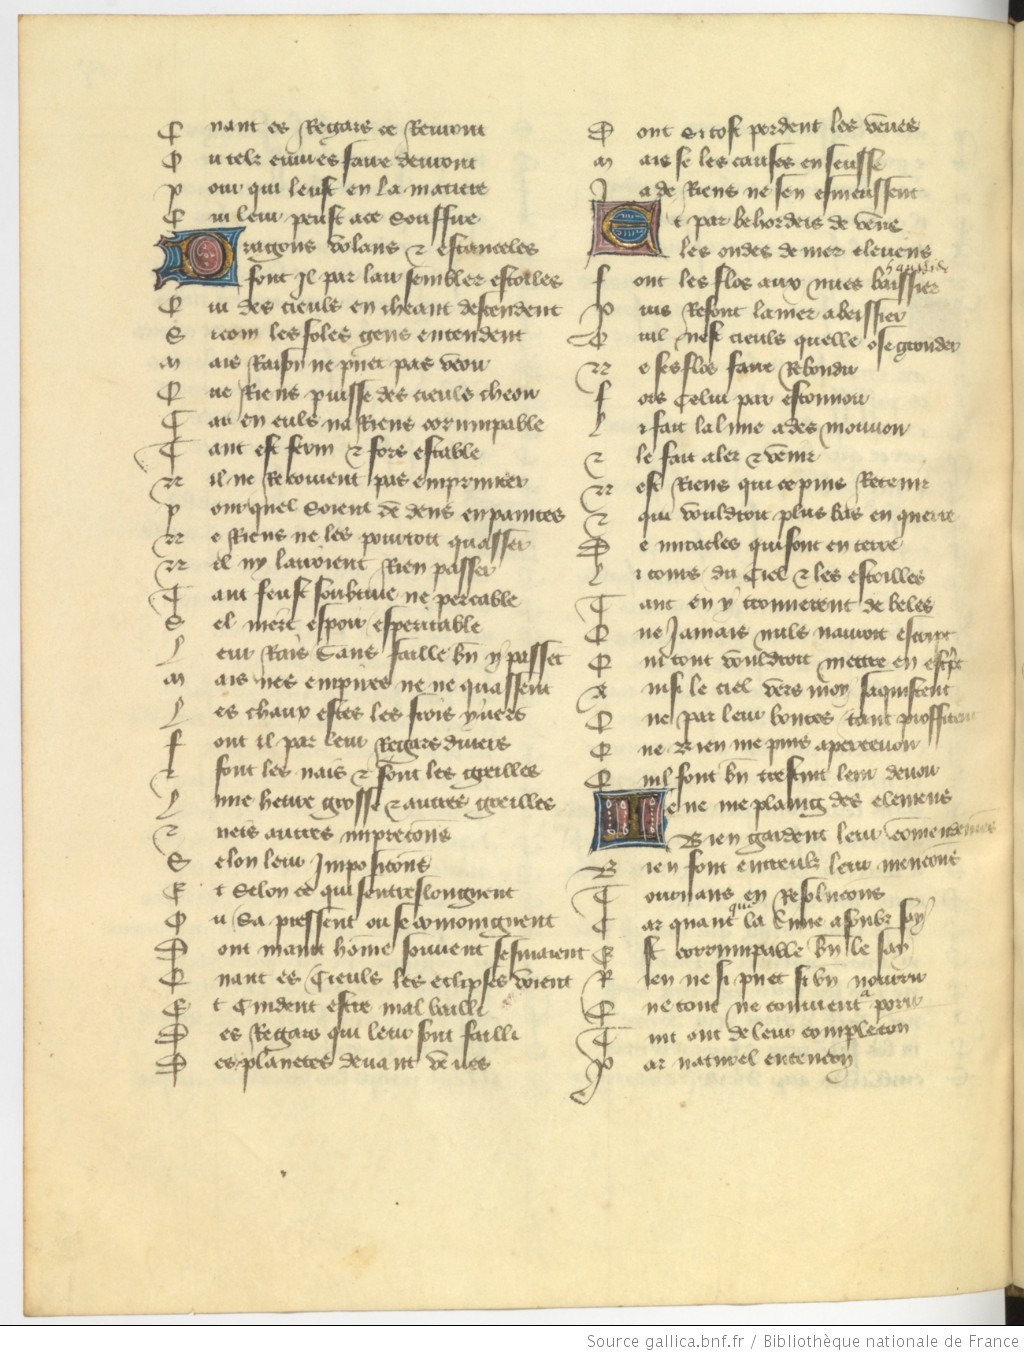 Quant es Regars ce Remont
Ou telz envies faire devront
Pour qui leust en la matiere
Qui leur peust a ce Souffire
Dragons volans & estanceles
font Il par lair sembler estoilles
Qui des cieulx en cheant descendent
Sicom les foles gens entendent
Mais Raison ne puet pas veoir
Que Riens puisse des cieulx cheoir
Car en eulx na Riens corrumpable
Tant est ferm & fors estable
Nil ne Recoivent pas emprimter
Pour quel Soient de dens empaintes
Ne Riens ne les pourroit quasser
Nil ny lairoient Rien passer
Tant feust soubtive ne percable
Sel nere espoir esperitable
Leur Rais Sans faille bn y passet
Mais nes empires ne ne quassent
Les chaux estes les frois yvers
Font il par leur Regars divers
& font les nais & font les greilles
Une heure grosse & autres greilles
& neis autres imprecons
Selon leur Impositions
Et Selon ce qui sentreslongnent
Ou Sa pressent ou se conioingnent
Dont maint home souvent sesmaient
Quant es Cieulx les eclipses voient
Et Cuident estre mal bailli
Des Regars qui leur sont failli
Des planetes devant veues
Dont Si tost perdent les veues
Mais se les causes en seusse
Ja de Riens ne sen esmeussent
Et par behordeis de vens
les ondes de mer elevens
Font les flos aux nues baissier
Puis Refont la mer abeissier
Quil nest cieulx quelle ose gronder
Ne ses flos faire Rebondir
Fors Celui par estouvoir
Li fait la lune ades mouvoir
& le fait aler & venir
Nest Riens qui ce puis Retenir
& qui vouldroit plus bas en querre
De miracles qui font en terre
Li cours du Ciel & les estoilles
Tant en y trouverent de beles
Que Jamais nuls nauroit escript
Qui tout vouldroit mettre en escript
Ainsi le ciel vers moy saquittent
Que par leur bontes tant proffitent
Que Bien me puis apercevoir
Quil font bn trestuit leur devoir
Ne ne me plaing des elemens
Bien gardent leur comendemens
Bien font entreulx leur mencons
Tournans en Resolucons
Car quant que la lune a soubz soy
Est corrumpable bn le say
Rien ne si puet si bn nourrir
Que tout ne convient a porir
Tuit ont de leur complecon
Par naturel entencon
Source gallica.bnf.fr / Bibliothèque nationale de France